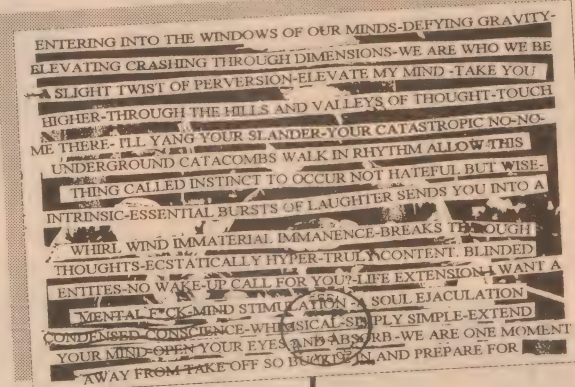 ENTERING INTO THE WINDOWS OF OUR MINDS-DEFYING GRAVITY-
ELEVATING CRASHING THROUGH DIMENSIONS-WE ARE WHO WE BE
A SLIGHT TWIST OF PERVERSION-ELEVATE MY MIND -TAKE YOU
HIGHER-THROUGH THE HILLS AND VALLEYS OF THOUGHT-TOUCH
ME THERE- I'LL YANG YOUR SLANDER-YOUR CATASTROPIC NO-NO-
UNDERGROUND CATACOMBS WALK IN RHYTHM ALLOW THIS
THING CALLED INSTINCT TO OCCUR NOT HATEFUL BUT WISE-
INTRINSIC-ESSENTIAL BURSTS OF LAUGHTER SENDS YOU INTO A
WHIRL WIND IMMATERIAL IMMANENCE-BREAKS THROUGH
THOUGHTS-ECSTATICALLY HYPER-TRULY CONTENT. BLINDED
ENTITES-NO WAKE-UP CALL FOR YOU?-LIFE EXTENSION I WANT A
MENTAL F*CK-MIND STIMULATION- A SOUL EJACULATION
CONDENSED CONSCIENCE-WHIMSICAL-SIMPLY SIMPLE-EXTEND
YOUR MIND-OPEN YOUR EYES AND ABSORB-WE ARE ONE MOMENT
AWAY FROM TAKE OFF SO BUCKLE IN AND PREPARE FOR